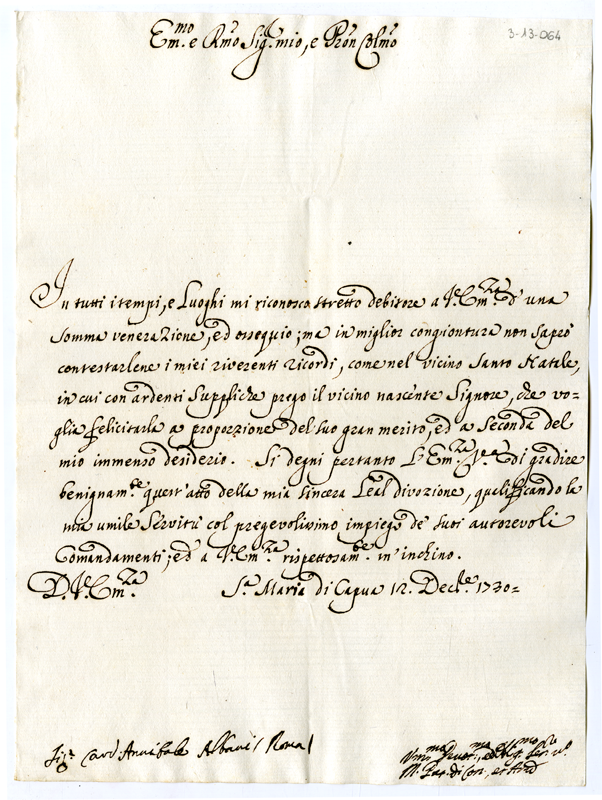 3-13-064
Em.mo e Rmo Sig.r mio, e Pron Colmo
In tutti i tempi, e Luoghi mi riconosco stretto debitore a V.e Em.za d'una
somma venerazione, ed ossequio; ma in miglior congiontura non saprò
contestarlene i miei riverenti ricordi, come nel vicino Santo Natale,
in cui con ardenti Suppliche prego il vicino nascente Signore, che vo=
glia felicitarla a proporzione del suo gran merito, ed a seconda del
mio immenso desiderio. Si degni pertanto L'Em.za V.a di gradire
benignam.te quest'atto della mia sincera Leal divozione, qualificando la
mia umile Servitù col pregevolissimo impiego de' suoi autorevoli
Comandamenti; ed a V.e Em.za rispettosam.te m'inchino.
D. V.e Em.za S.a Maria di Capua 12. Dec.e 1730=
Sig.r Card. Annibale Albani / Roma /
Um.mo Devot.mo ed